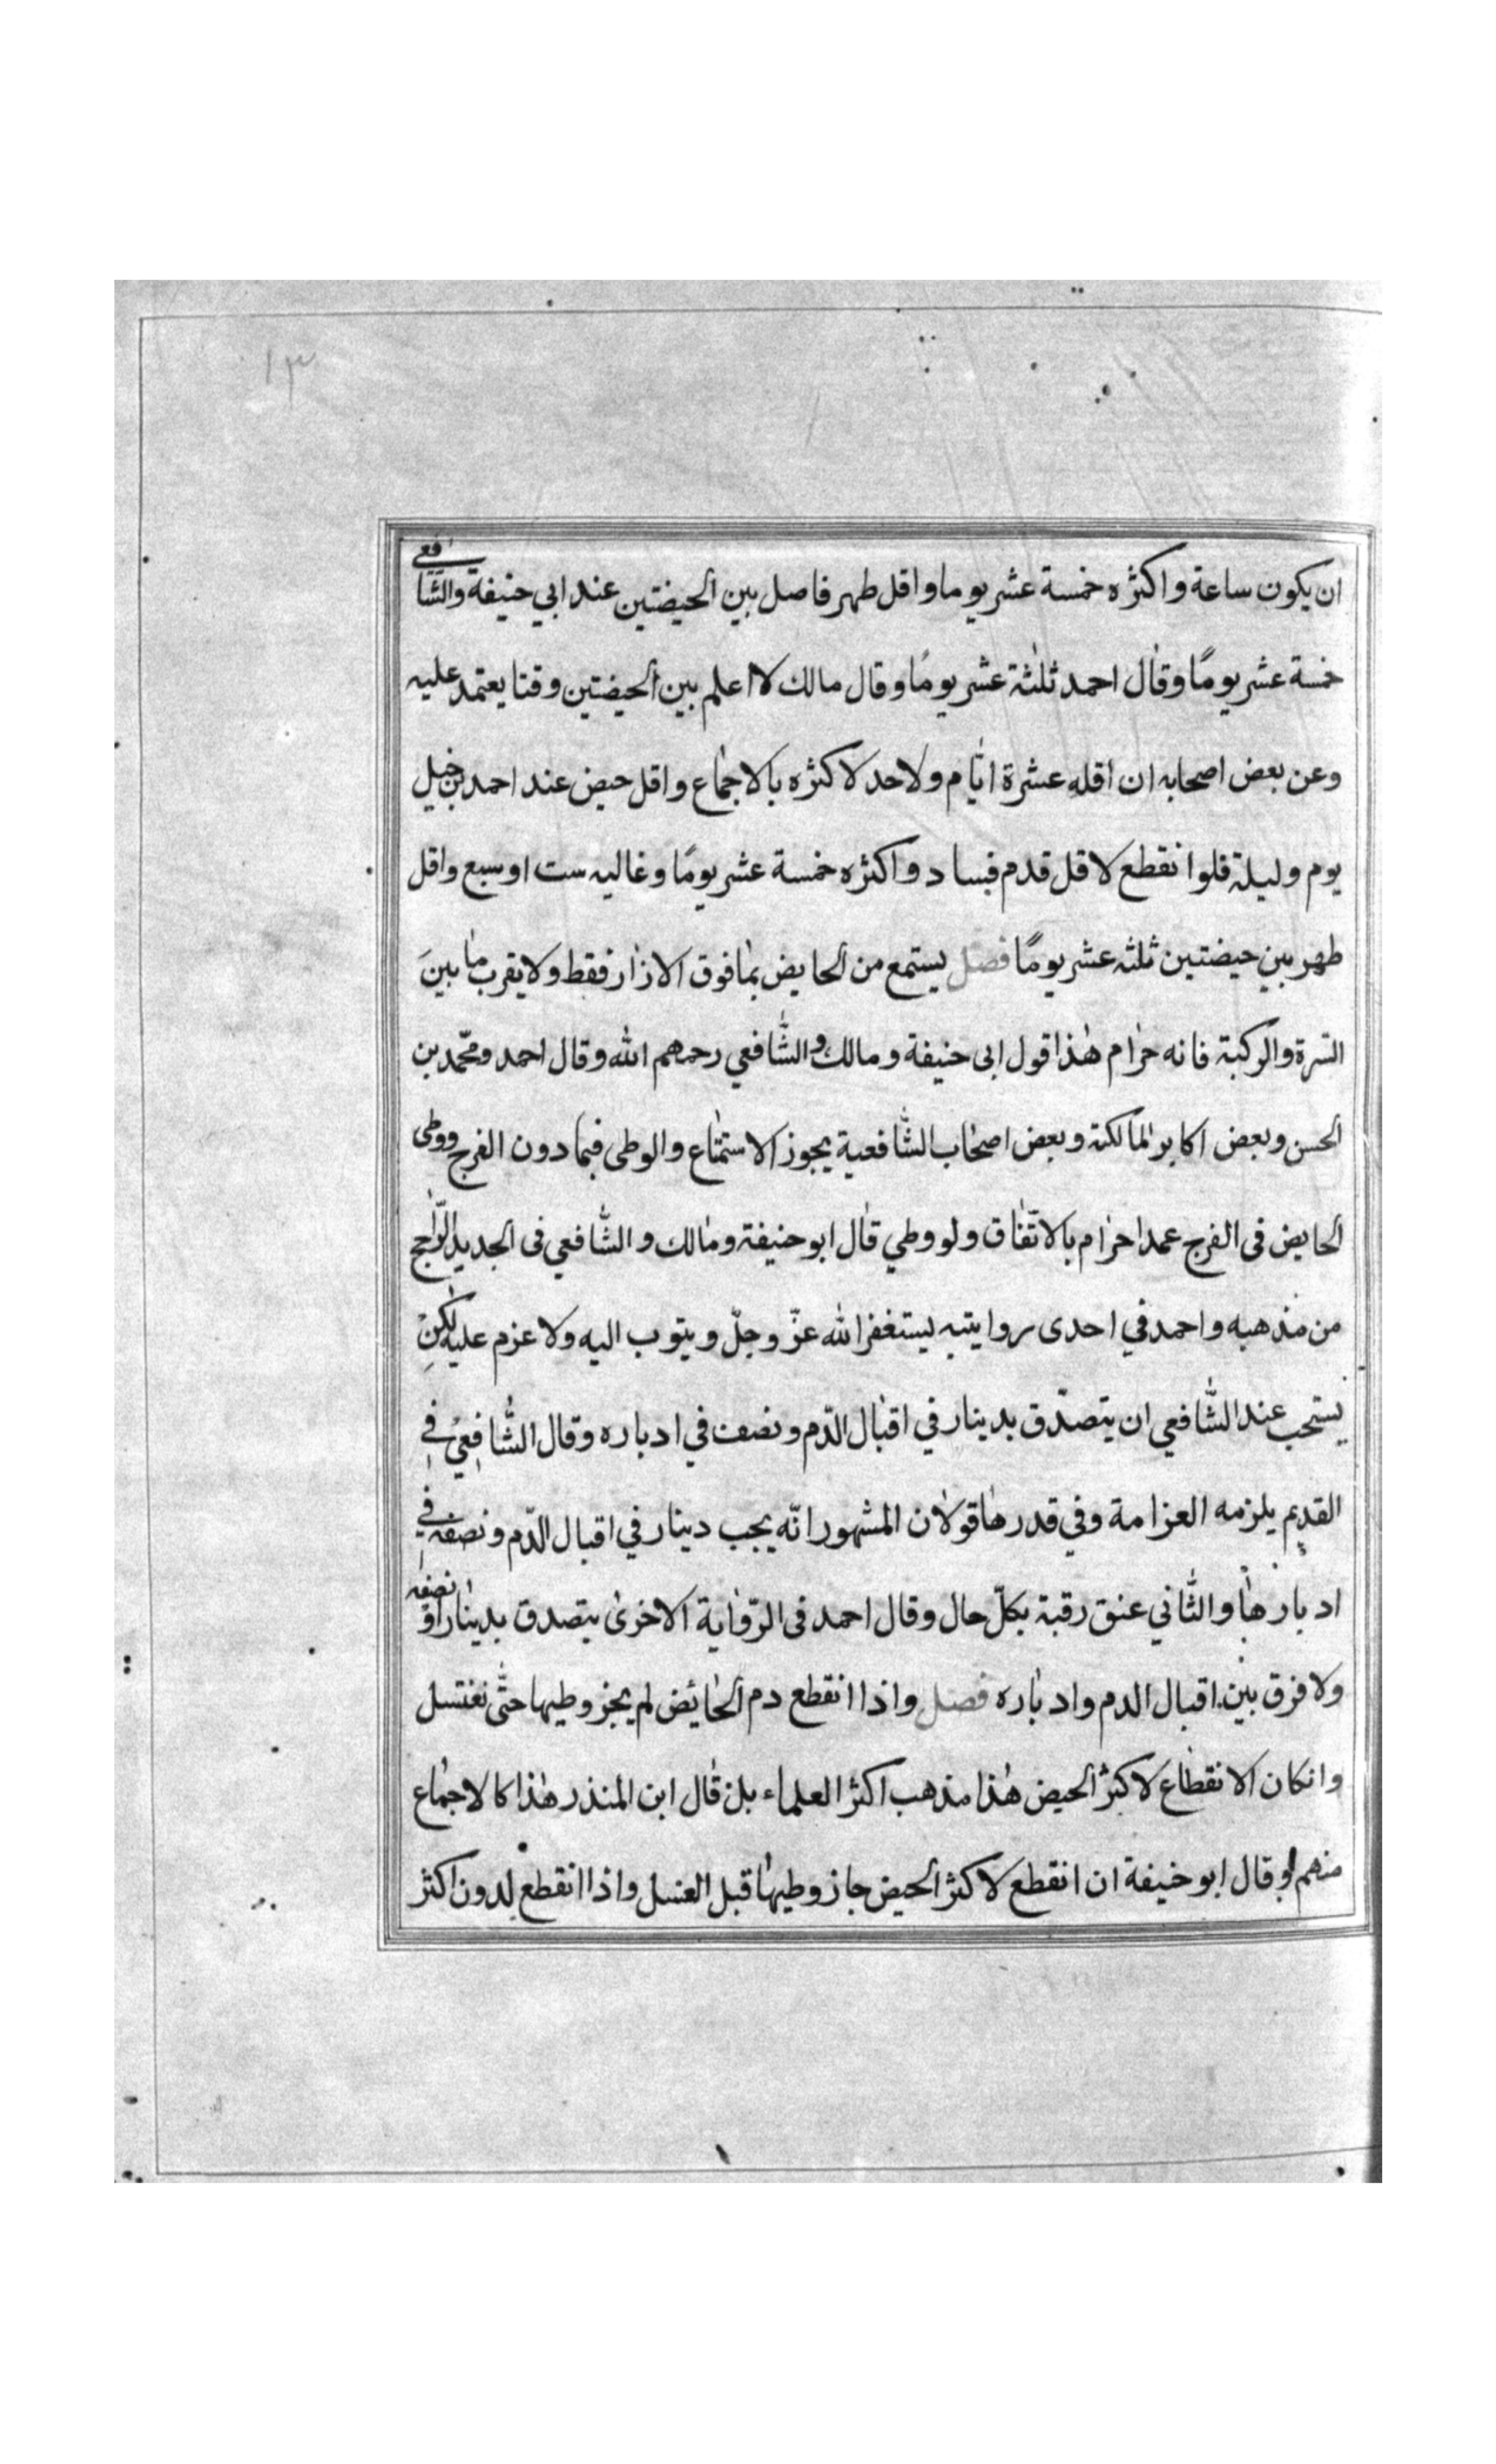 ١٣
ان يكون ساعة و اكثره خمسة عشر يوما و اقل طهر فاصل بين الحيضتين عند ابي حنيفة والشافعي
خمسة عشر يومًا وقال احمد ثلثة عشر يومًا وقال مالك لا اعلم بين الحيضتين وقتا يعتمد عليه
وعن بعض اصحابه ان اقله عشرة ايّام ولا حد لاكثره بالاجماع و اقل حيض عند احمد بن حنبل
يوم وليلة فلو انقطع لاقل قدم فساد و اكثره خمسة عشر يومًا و غالبه ست او سبع واقل
طهر بين حيضتين ثلثه عشر يومًا فصل يستمع من الحايض بما فوق الازار فقط ولا يقرب ما بينَ
السرة والركبة فانه حرام هذا قول ابى حنيفة ومالك والشّافعي رحمهم الله وقال احمد ومحمّد بن
الحسن وبعض اكابر المالكية وبعض اصحاب الشّافعية يجوز الاستمتاع والوطى فيما دون الفرج ووطى
الحايض فى الفرج عمدا حرام بالاتّفاق ولو وطي قال ابو حنيفة ومالك و الشّافعي فى الجديد الرّاجح
من مذهبه واحمد في احدى روايتيه يستغفر الله عزّ وجلّ و يتوب اليه ولا عزم عليه لكنْ
يستحب عند الشّافعي ان يتصدّق بدينار في اقبال الدّم ونصف في ادباره وقال الشّافعيُ في
القديم يلزمه العزامة وفي قدرها قولان المشهور انّه يجب دينار في اقبال الدّم ونصفه في
ادبارها والثّاني عنق رقبة بكلّ حال وقال احمد فى الرّواية الاخرى يتصدق بدينار او نصفه
ولا فرق بين اقبال الدم وادباره فصل واذا انقطع دم الحائض لم يجز وطيها حتّى تغتسل
وانكان الانقطاع لاكثر الحيض هذا مذهب اكثر العلماء بلن قال ابن المنذر هذا كالاجماع
منهم وقال ابو حنيفة ان انقطع لاكثر الحيض جاز وطيها قبل الغسل واذا انقطع لدون اكثر